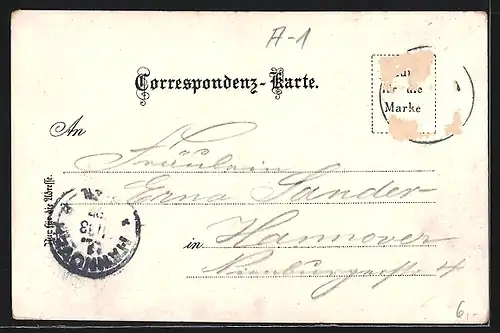 A-1
Correspondenz-Karte.
für die
Marke
An
Fräulein
Erna Sander
in Hannover
Nienburgerstr. 4
Nur für die Adresse.
HANNOVER
6,-